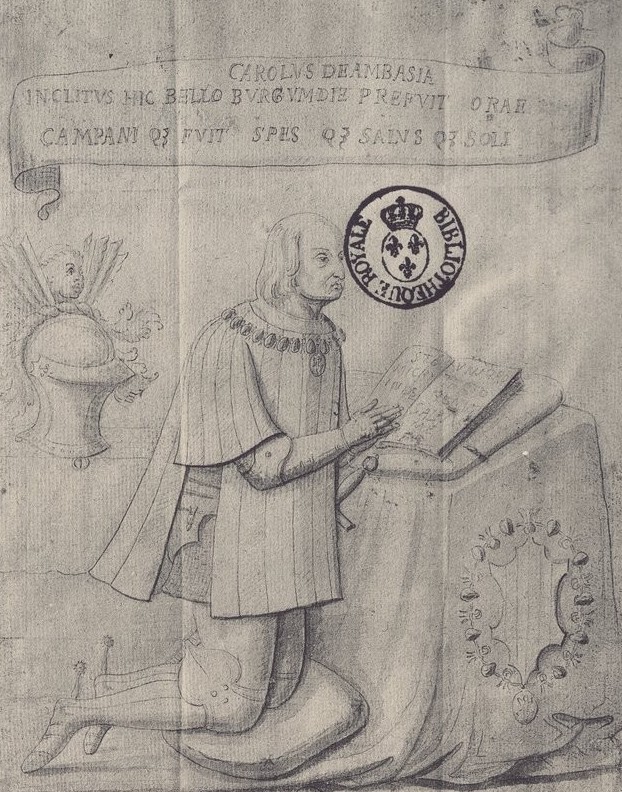 CAROLVS DEAMBASIA
INCLITVS HIC BELLO BVRGVMDIE PREFVIT ORAE
CAMPANI QȜ FVIT SPES QȜ SALVS QȜ SOLI
BIBLIOTHEQUE ROYALE